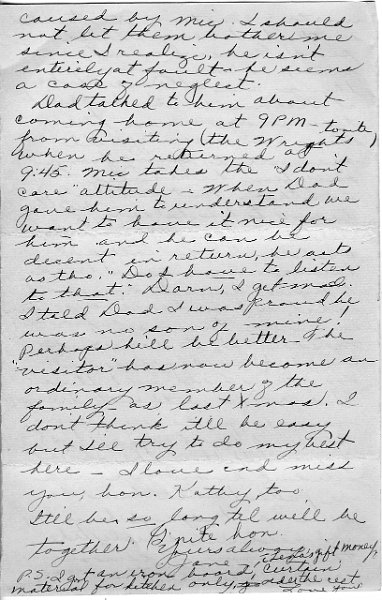 caused by Mic. I should
not let them bother me
since I realize, he isn't
entirely at fault - he seems
a case of neglect.
Dad talked to him about
coming home at 9 PM - tonite
from visiting (the Wrights
when he returned at
9:45. Mic takes the "I don't
care" attitude - When Dad
gave him to understand we
want to have it nice for
him and he can be
decent in return, he acts
as tho, "Do I have to listen
to that." Darn, I get mad.
I told Dad I was proud he
was no son of mine!
Perhaps he'll be better. The
"visitor" has now become an
ordinary member of the
family - as last Xmas. I
dont think itll be easy
but I'll try to do my best
here - I love and miss
you, hon. Kathy, too.
Itll be so long til we'll be
together. G'nite hon.
Yours always,
Jane
P.S. I got an iron board, curtain
material for kitchen only, gift money,
the rest
Love